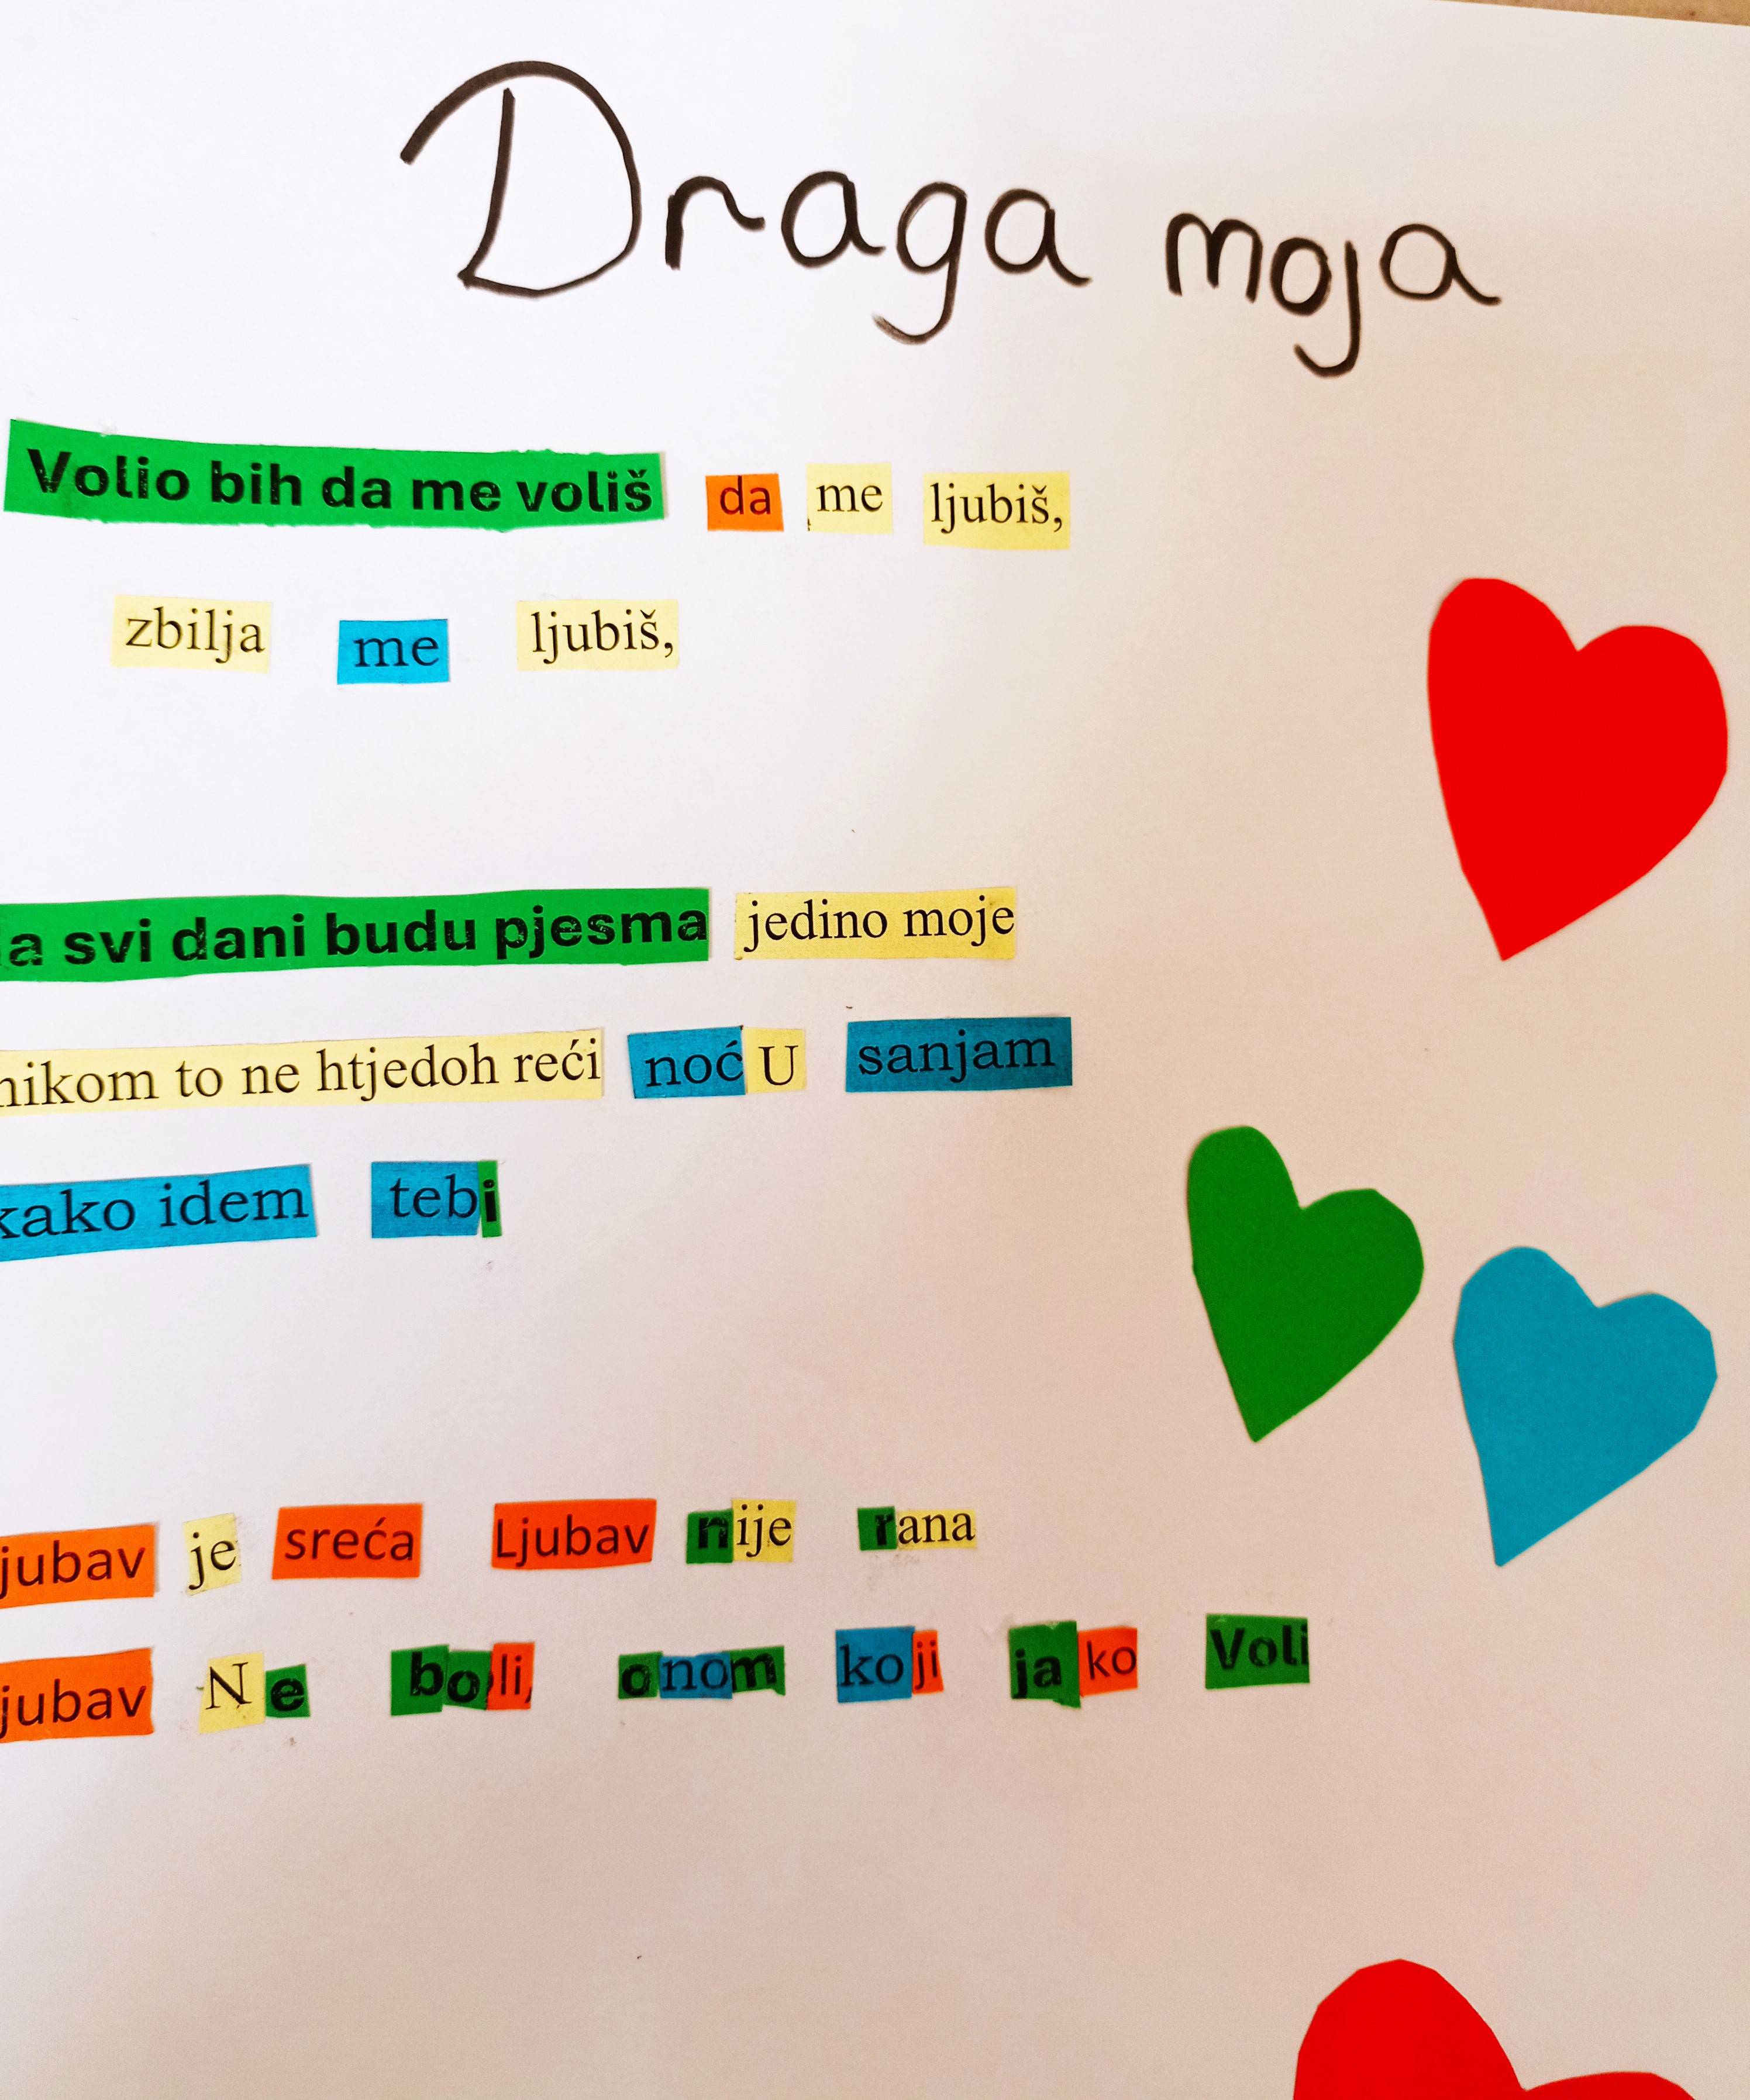 Draga moja
Volio bih da me voliš da me ljubiš,
zbilja me ljubiš,
a svi dani budu pjesma jedino moje
nikom to ne htjedoh reći noć U sanjam
kako idem tebi
jubav je sreća Ljubav nije rana
jubav Ne boli, onom koji jako Voli